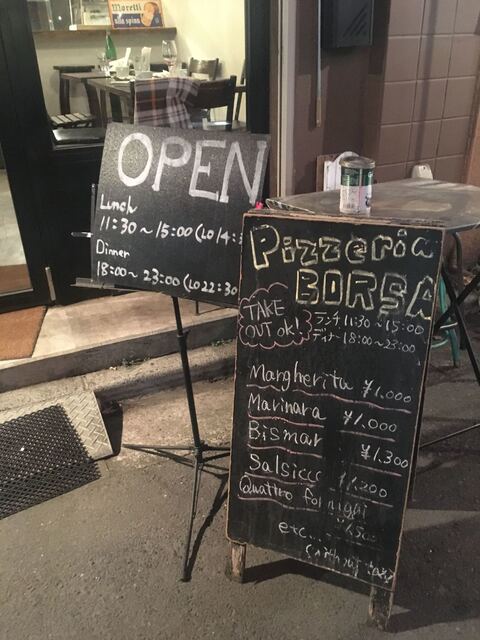 Moretti
alla spina
OPEN
Lunch
11:30~15:00 (LO 14:3
Dinner
18:00~23:00 (LO 22:30
Pizzeria
BORSA
TAKE
OUT ok!
ランチ 11:30~15:00
ディナー 18:00~23:00
Margherita ¥1.000
Marinara ¥1.000
Bismar ¥1.300
Salsicce ¥1.200
Quattro formaggi
etc...